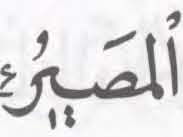 ٱلْمَصِيرُ ء